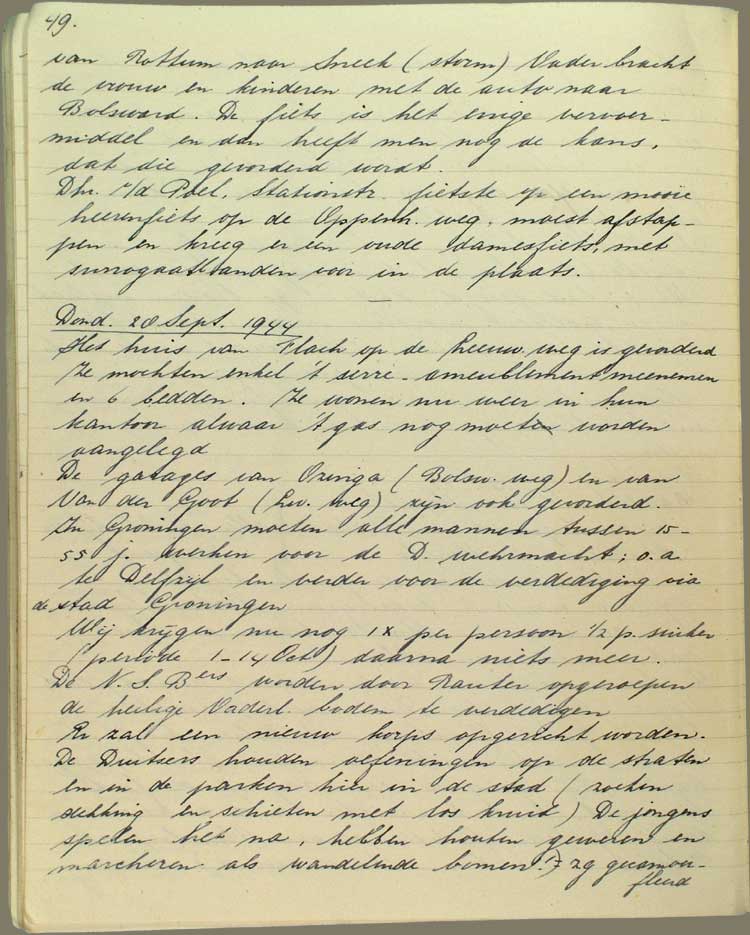 49.
van Rottum naar Sneek (storm) Vader bracht
de vrouw en kinderen met de auto naar
Bolsward. De fiets is het enige vervoer-
middel en dan heeft men nog de kans,
dat die gevorderd wordt.
Dhr. v/d Poel, Stationstr. fietste op een mooie
heerenfiets op de Oppenh. weg, moest afstap-
pen en kreeg er een oude damesfiets, met
surrogaatbanden voor in de plaats.
Dond. 28 Sept. 1944
Het huis van Flach op de Leeuw. weg is gevorderd
Ze mochten enkel 't serre-ameublement meenemen
en 6 bedden. Ze wonen nu weer in hun
kantoor alwaar 't gas nog moeten worden
aangelegd
De garages van Ozinga (Bolsw. weg) en van
Van der Goot (Lw. weg) zijn ook gevorderd.
In Groningen moeten alle mannen tussen 15-
55 j. werken voor de D. wehrmacht; o.a
te Delfzijl en verder voor de verdediging via
de stad Groningen
Wij krijgen nu nog 1 x per persoon 1/2 p. suiker
(periode 1-14 Oct) daarna niets meer.
De N.S.Bers worden door Rauter opgeroepen
de heilige Vaderl. bodem te verdedigen
Er zal een nieuw korps opgericht worden.
De Duitsers houden oefeningen op de straten
en in de parken hier in de stad (zoeken
dekking en schieten met los kruid) De jongens
spelen het na, hebben houten geweren en
marcheren als wandelende bomen. zg gecamou-
fleerd